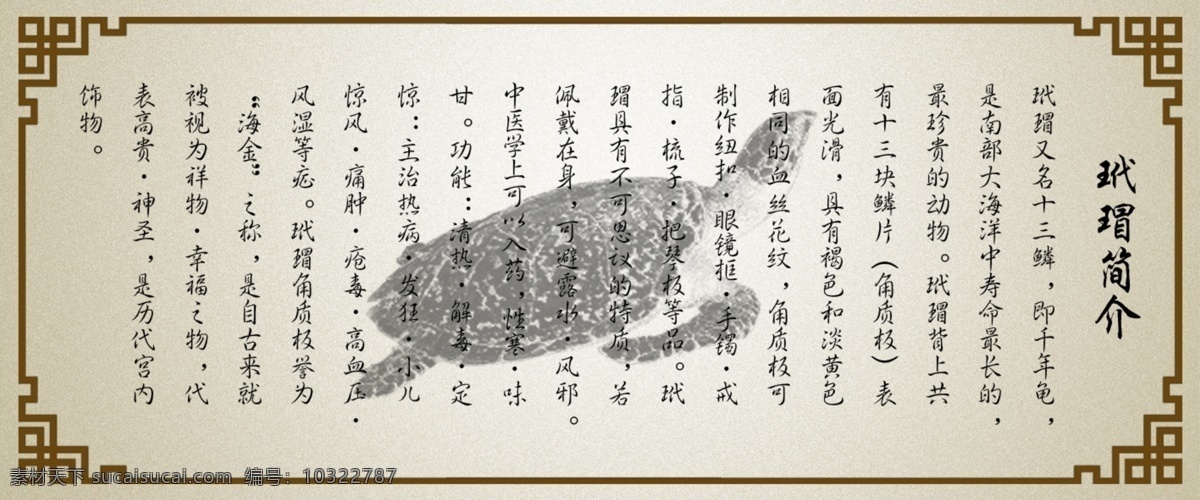 玳瑁简介
玳瑁又名十三鳞，即千年龟，
是南部大海洋中寿命最长的，
最珍贵的动物。玳瑁背上共
有十三块鳞片（角质板）表
面光滑，具有褐色和淡黄色
相同的血丝花纹，角质板可
制作纽扣·眼镜框·手镯·戒
指·梳子·把琴板等品。玳
瑁具有不可思议的特质，若
佩戴在身，可避露水·风邪。
中医学上可以入药，性寒·味
甘。功能：清热·解毒·定
惊：主治热病·发狂·小儿
惊风·痛肿·疮毒·高血压·
风湿等症。玳瑁角质板誉为
“海金”之称，是自古来就
被视为祥物·幸福之物，代
表高贵·神圣，是历代宫内
饰物。
素材天下 sucaisucai.com 编号：10322787